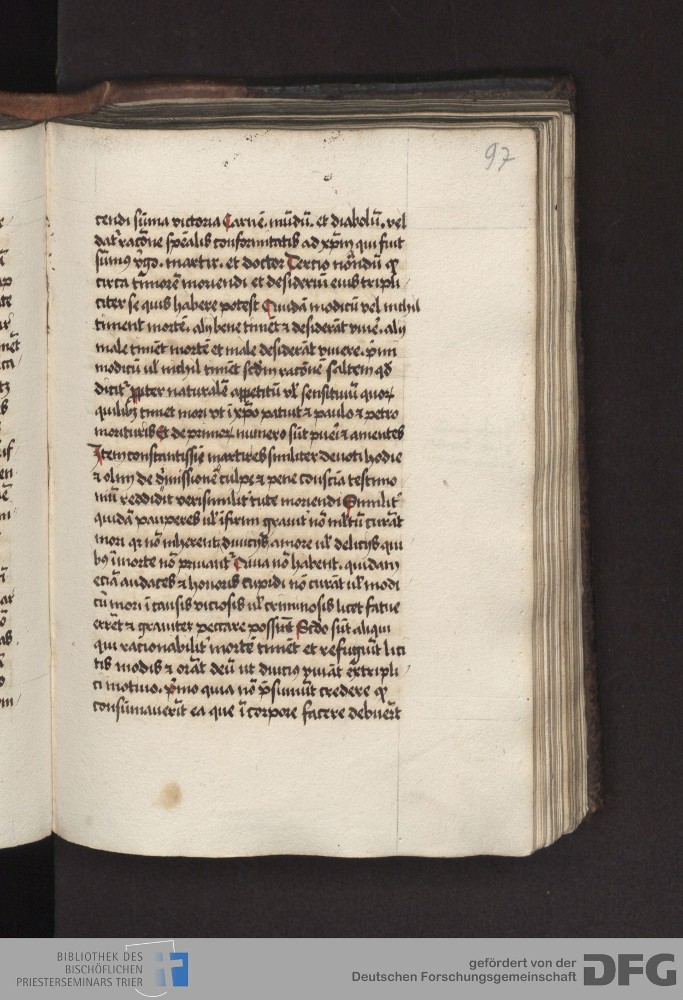 97
cendi sūma victoria Carnē. mūdū. et diabolū. vel
dat᷑ racōne spēalis conformitatis ad xp̄m qui fuit
sūmꝰ v̓go. martir. et doctor Tercio nōndū ꝙ
circa tīmorē moriendi et desideriū eius tripli
citer se quis habere potest Quidā modicū vel nichil
timent mortē. alij bene timēt ⁊ desiderāt viuē. alij
male timēt mortē et male desiderāt viuere. p̄mi
modicū ul̓ nichil timēt scd̄m racōnē saltem qd̓
dicit᷑ ꝓpter naturalē appetitū vl̓ sensitiuū quoꝝ
quilibꝫ timet mori vt ī xp̄o patuit ⁊ paulo ⁊ petro
morituris Et de primoꝝ numero sūt pueri ⁊ amentes
Item constantissimi martires similiter deuoti hodie
⁊ olim de dimissione culpe ⁊ pene consciā testimo
niū reddidit verisimilit᷑ tute moriendi Similit᷑
quidā pauperes ul̓ īfirmi grauit᷑ nō multū curāt
mori qꝛ nō inherent diuicijs amore ul̓ delicijs qui
bꝰ ī morte nō priuant᷑ Cuia nō habent. quidam
eciā audaces ⁊ honoris cupidi nō curāt ul̓ modi
cū mori ī causis viciosis ul̓ criminosis licet fatue
errēt ⁊ grauiter peccare possunt Scd̓o sūt aliqui
qui rationabilit᷑ mortē timēt et refugiūt lici
tis modis ⁊ orāt deū ut diucius viuāt ex tripli
ci motiuo. p̄mo quia nō p̄sumūt credere ꝙ
consūmauerīt ea que ī corpore facere debuerīt
BIBLIOTHEK DES
BISCHÖFLICHEN
PRIESTERSEMINARS TRIER
gefördert von der
Deutschen Forschungsgemeinschaft DFG